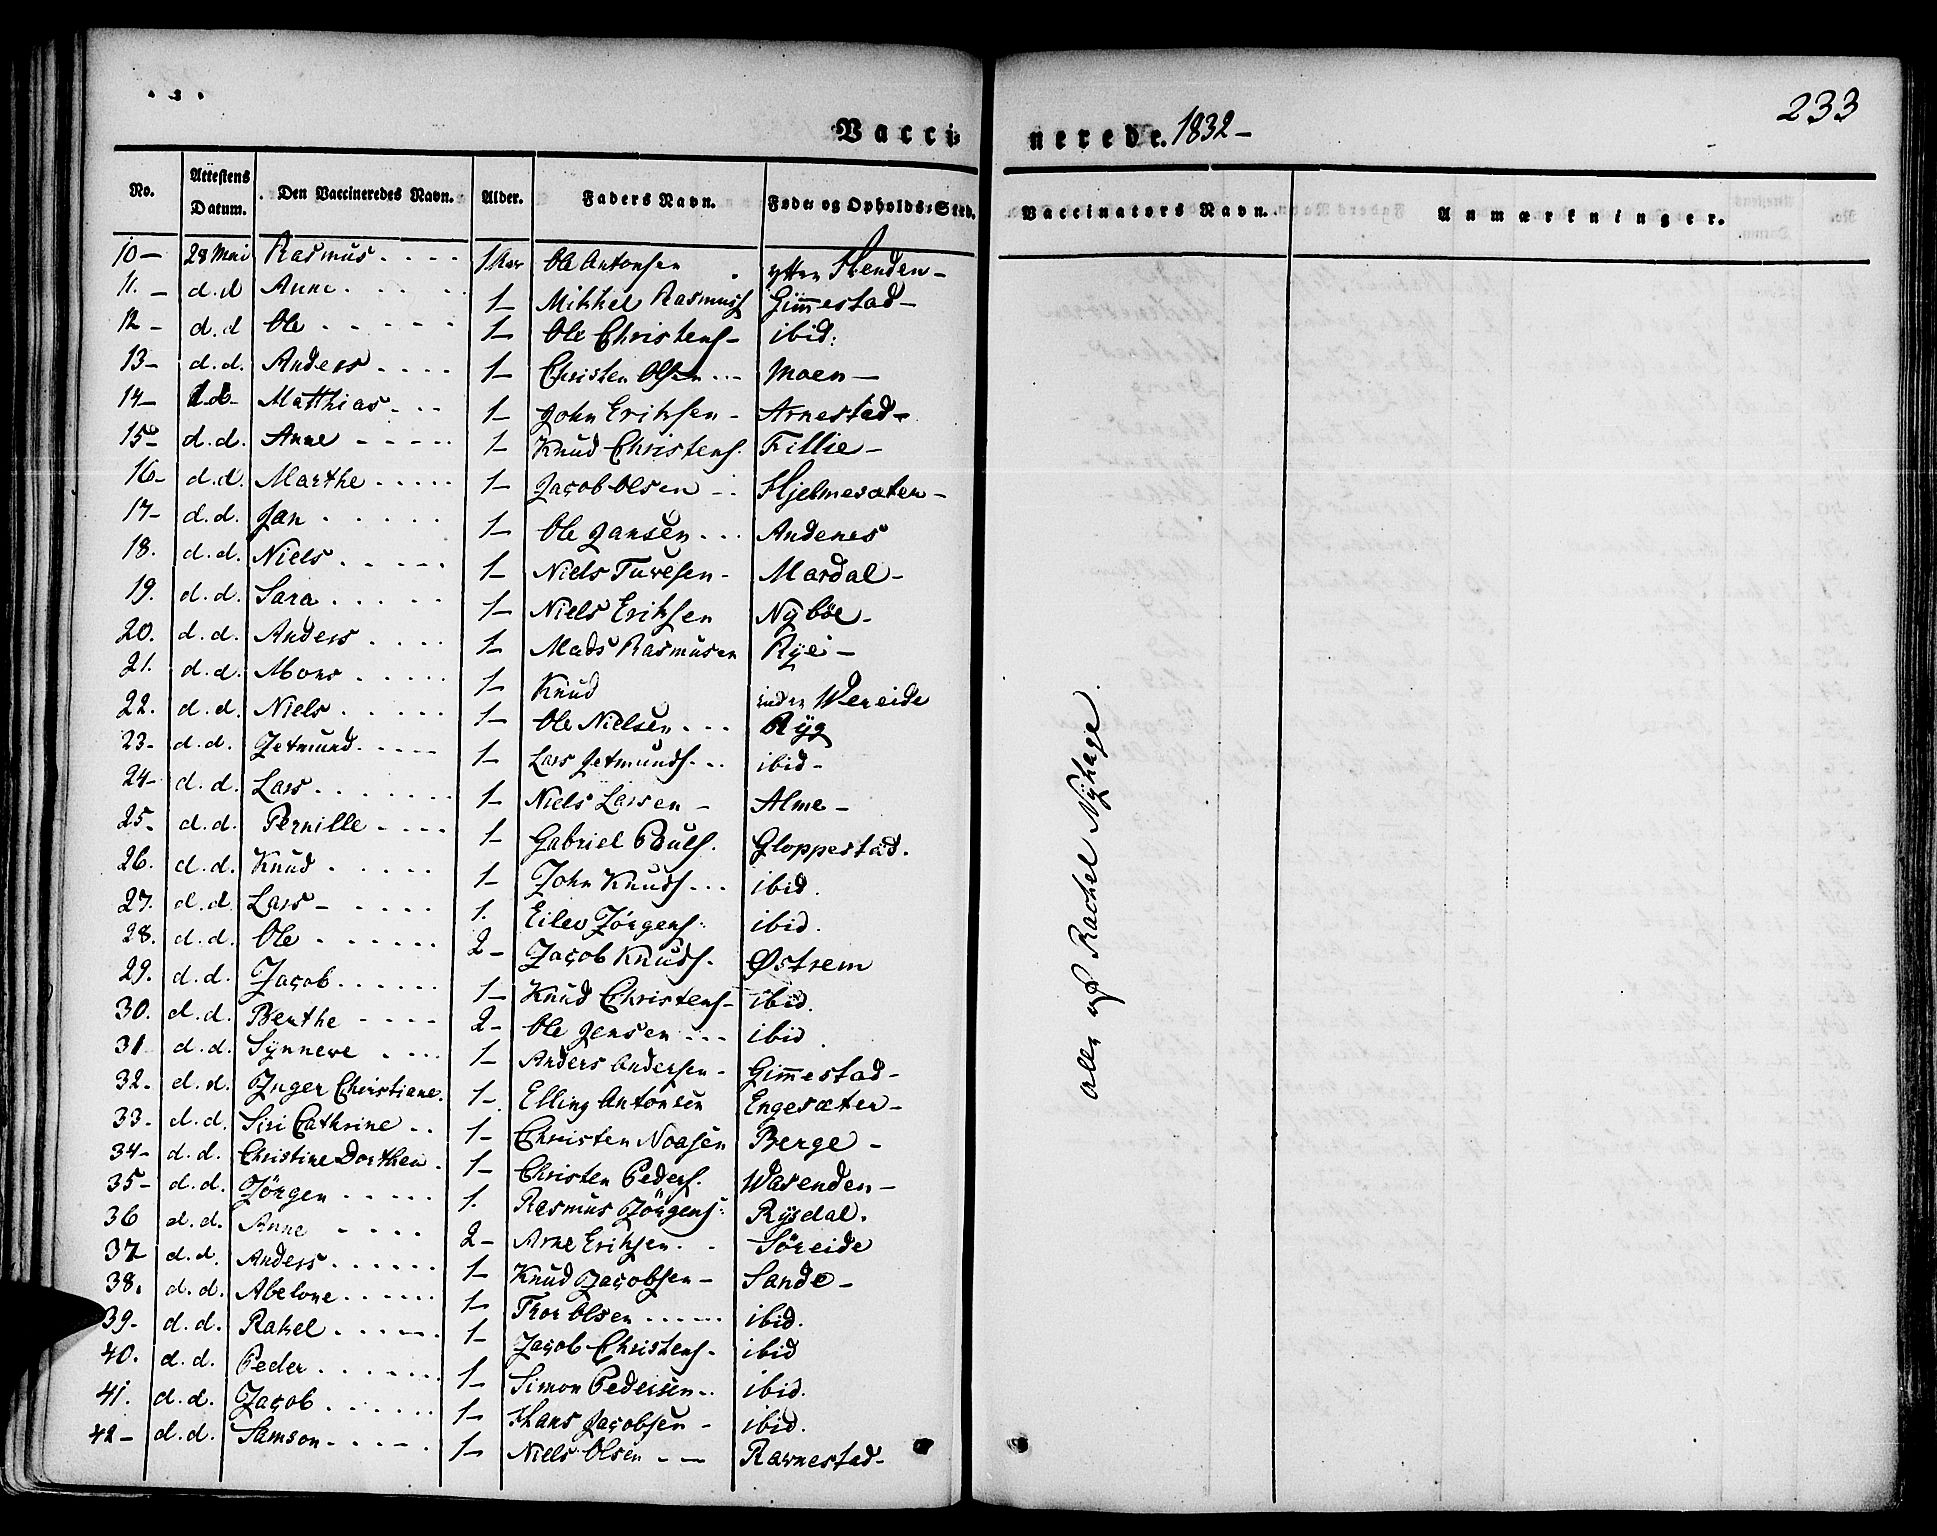 233
Vaccinerede. 1832 -
No. | Attestens Datum. | Den Vaccineredes Navn. | Alder. | Faders Navn. | Føde- og Opholds-Sted. | Vaccinators Navn. | Anmærkninger.
10 - | 28 Mai | Rasmus . . . . | 1 Aar | Ole Antonsen . | yttre Henden -
11. - | d. d | Anne . . . . | 1 - | Mikkel Rasmuss | Gimmestad -
12 - | d. d | Ole . . . . . | 1 - | Ole Christens - | ibid.
13 - | d. d. | Anders . . . . | 1 - | Christen Olsen . . . | Moen -
14 - | d. d - | Matthias . . . | 1 - | John Eriksen - | Arnestad -
15 - | d. d. | Anne - - - - - | 1 - | Knud Christens. | Fillie -
16 - | d. d. | Marthe . . . . . | 1 - | Jacob Olsen - . | Hjelmesæter -
17 - | d. d. | Jan . . . . . | 1 - | Ole Jansen . . . | Andenes
18. | d. d. | Niels . . . . . | 1 - | Niels Tuvesen - | Mardal -
19. | d. d. | Sara . . . . . | 1 - | Niels Eriksen | Nybøe -
20. | d. d. | Anders . . . . | 1 - | Mads Rasmusen | Rye -
21. | d. d. | Mons . . . . . | 1 - | Knud | indre Wereide
22. | d. d. | Niels . . . . . | 1 - | Ole Nielsen . . . | Ryg
23 - | d. d. | Jetmund . . . . . | 1 - | Lars Jetmunds . . . | ibid -
24 - | d. d. | Lars . . . . . . . | 1 - | Niels Larsen - | Alme -
25 - | d. d. | Pernille . . . . | 1 - | Gabriel Pouls. | Gloppestad.
26. | d. d. | Knud . . . . . | 1 - | John Knuds . . . | ibid.
27. | d. d. | Lars - . . . . | 1. | Eilev Jörgens. | ibid.
28. | d. d. | Ole . . . . . . | 2 - | Jacob Knuds. | Østrem
29. | d. d. | Jacob . . . . . . | 1 - | Knud Christens - | ibid.
30. | d. d. | Berthe - - - - | 2 - | Ole Jensen . . . | ibid.
31 | d. d. | Synneve . . . . | 1 - | Anders Andersen - | Gimmestad -
32. | d. d. | Inger Christiane. | 1 - | Elling Antonsen | Engesæter -
33. | d. d. | Siri Cathrine . . | 1 - | Christen Noasen | Berge -
34 - | d. d. | Christine Dorthea . | 1 - | Christen Peders. | Wasenden -
35 - | d. d. | Jörgen . . . . . | 1. | Rasmus Jörgens. | Rysdal.
36 | d. d. | Anne - . . . | 2 - | Arne Eriksen . . | Söreide
37 - | d. d. | Anders . . . . . . | 1 - | Knud Jacobsen - | Sande -
38. | d. d. | Abelone . . . . . . | 1 - | Thor Olsen . . . . . . | ibid.
39. | d. d. | Rakel . . . . . . | 1 - | Jacob Christens. | ibid
40. | d. d. | Peder . . . . . . | 1 - | Simon Pedersen . . | ibid.
41. | d. d. | Jacob . . . . . . | 1 - | Hans Jacobsen - | ibid.
42 - | d. d. | Samson . . . . . | 1 - | Niels Olsen - - | Ravnestad -
alle af Rachel Nyhage.